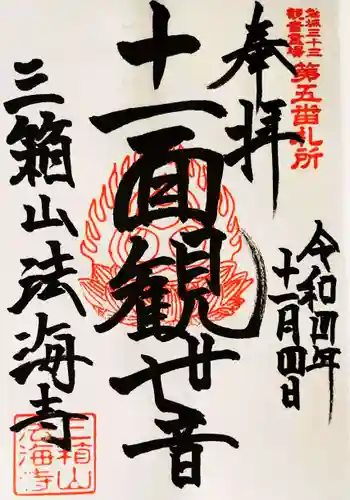 三十三
観音霊場
第五番札所
奉拝
令和四年
十一月四日
十一面観世音
三箱山法海寺
三箱山
法海寺